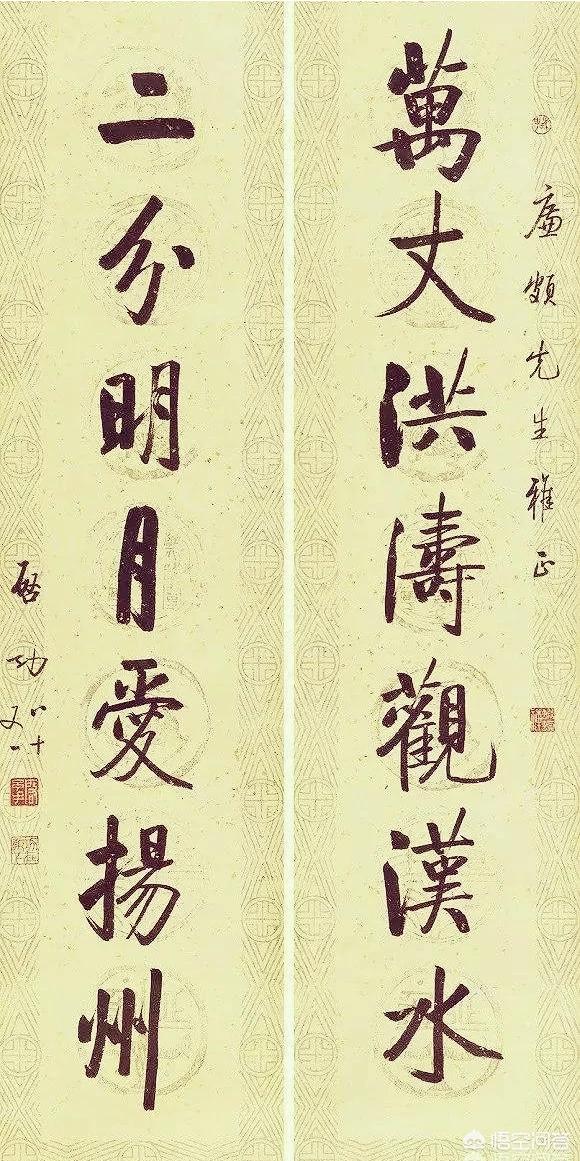 廉頗先生雅正
萬丈洪濤觀漢水
二分明月愛揚州
啓功
八十
又一
悟空问答